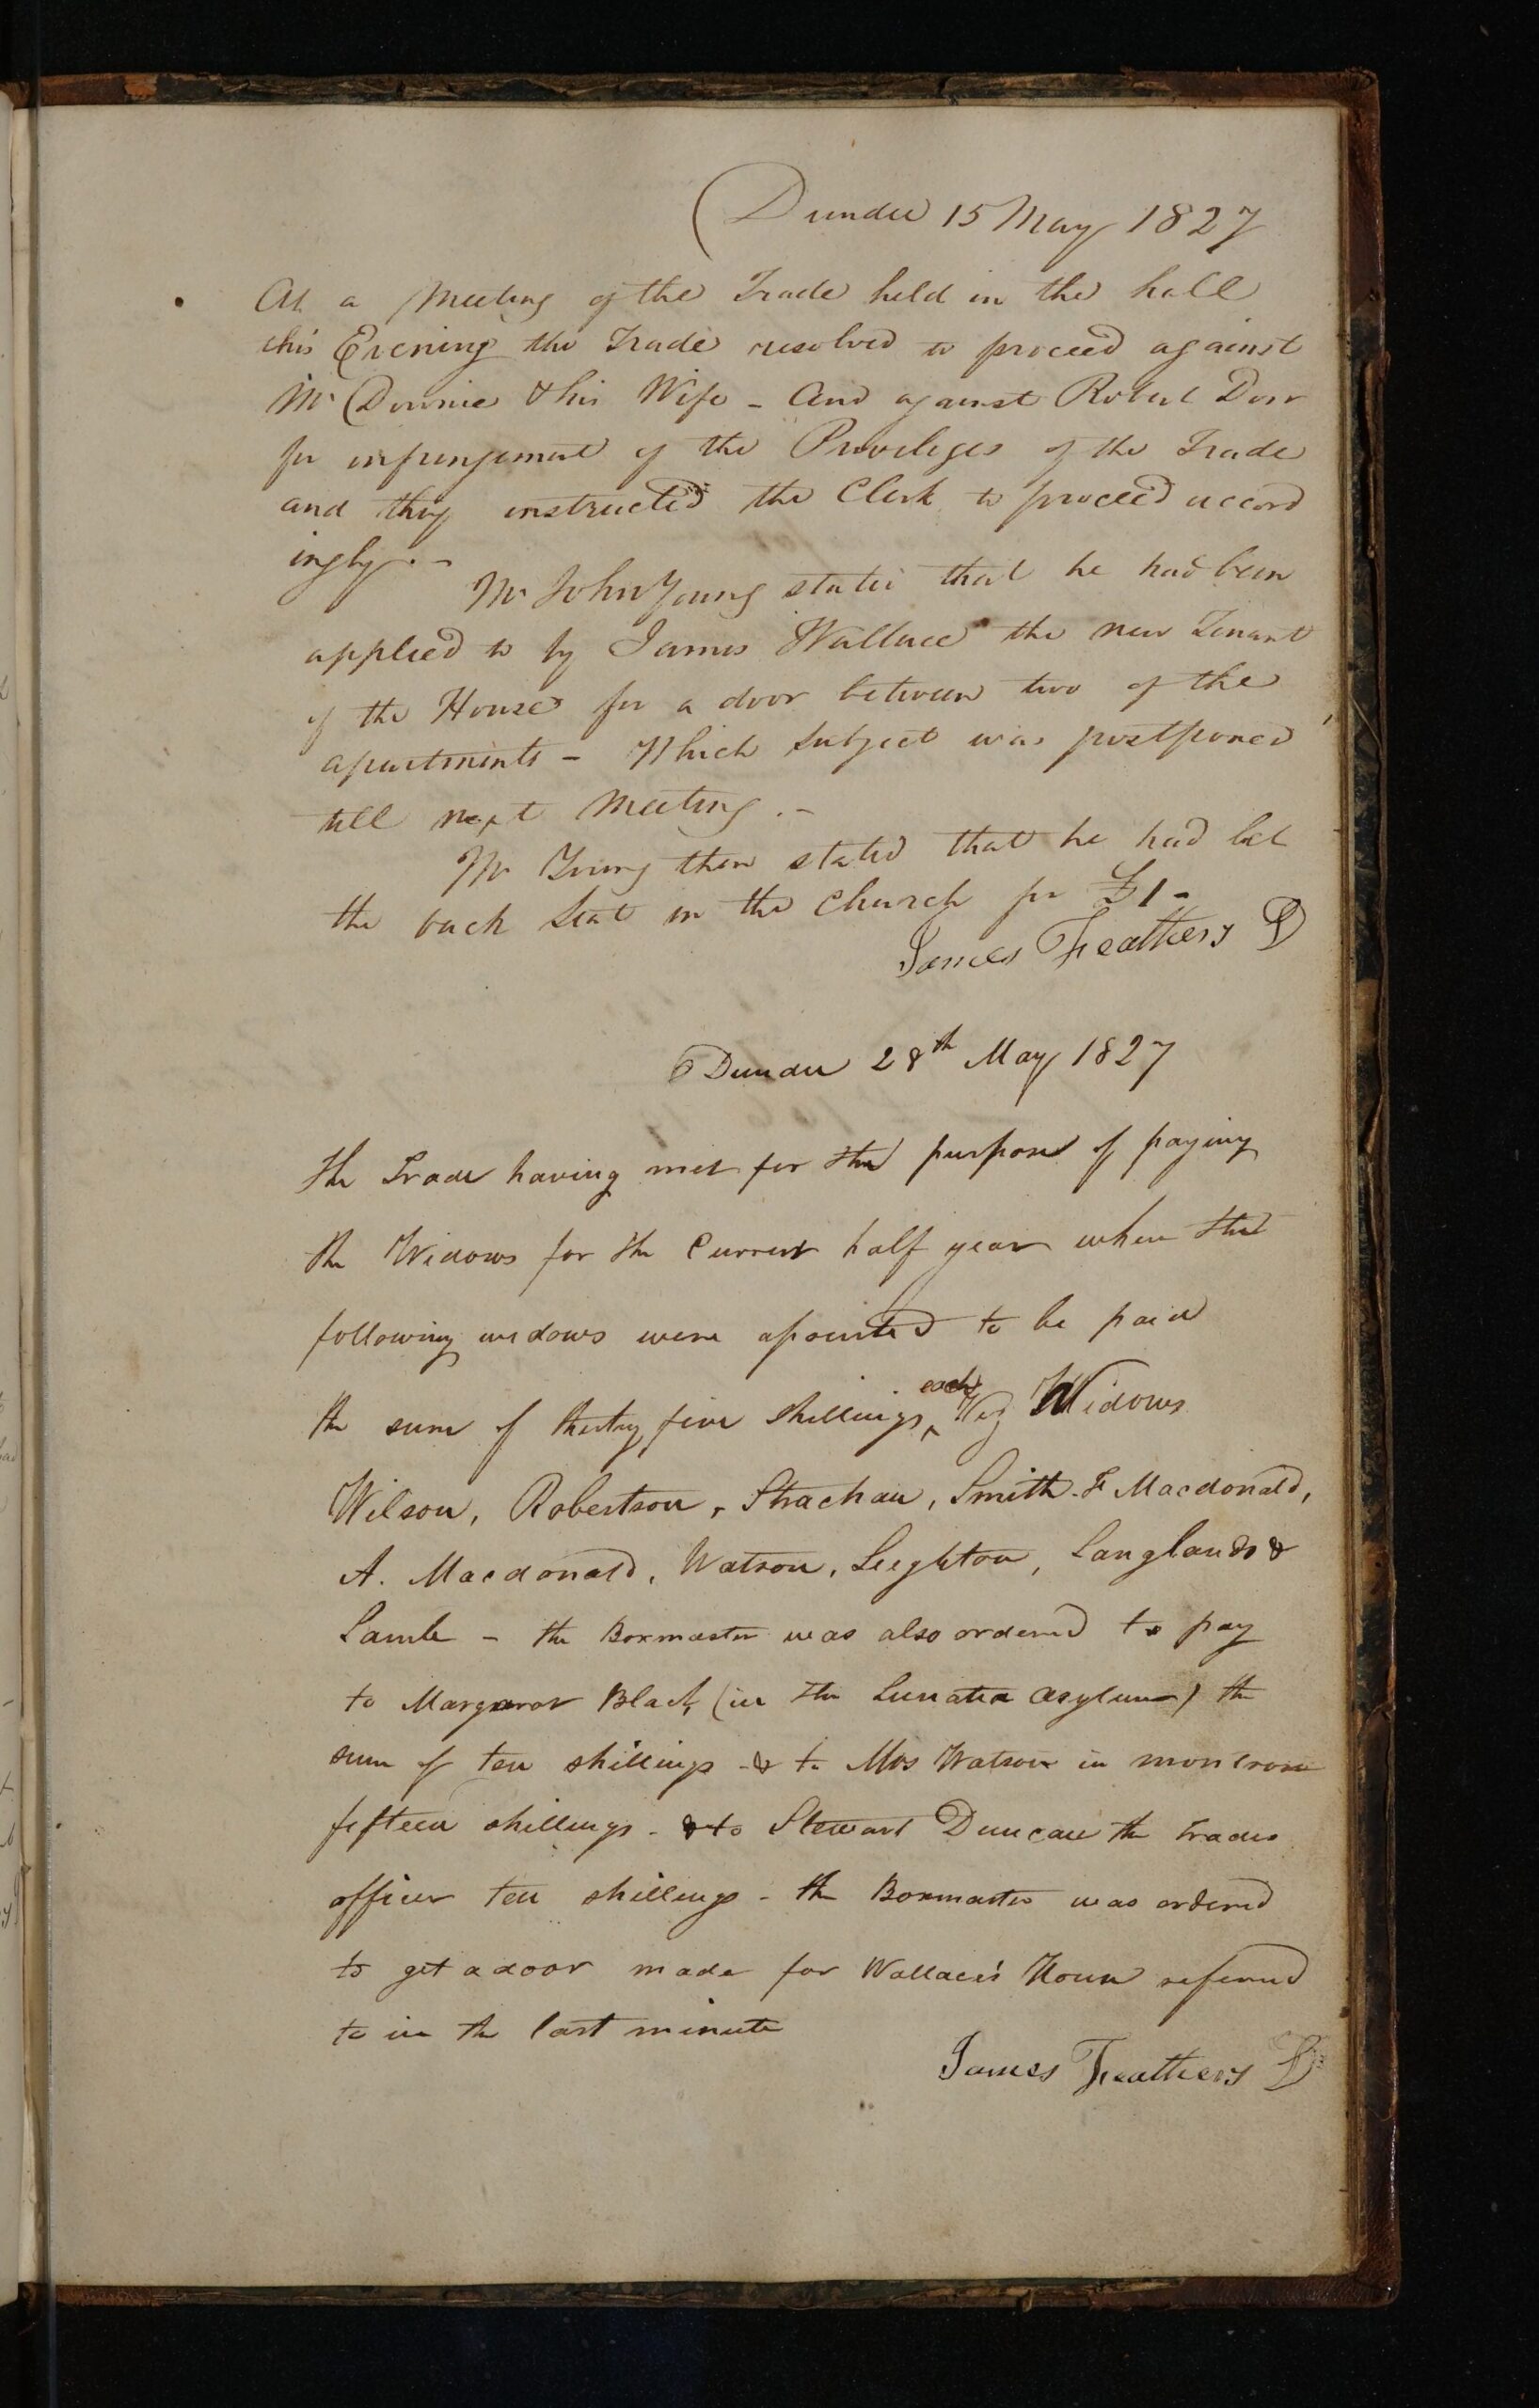 Dundee 15 May 1827
At a Meeting of the Trade held in the hall
this Evening the Trade resolved to proceed against
Mr Downie & his Wife - And against Robert Dorr
for infringement of the Privileges of the Trade
and they instructed the Clerk to proceed accord
ingly. -
Mr John Young stated that he had been
applied to by James Wallace the new Tenant
of the House for a door between two of the
apartments - Which subject was postponed
till next Meeting. -
Mr Young then stated that he had let
the back seat in the Church for £1 -
James Feathers D
Dundee 28th May 1827
The Trade having met for the purpose of paying
the Widows for the Current half year when the
following widows were apointed to be paid
the sum of thirty five shillings each Viz Widows
Wilson, Robertson, Strachan, Smith. F Macdonald,
A. Macdonald, Watson, Leighton, Langlands &
Lamb - the Boxmaster was also ordered to pay
to Margaret Black (in the Lunatic Asylum) the
sum of ten shillings - & to Mrs Watson in Montrose
fifteen shillings - & to Stewart Duncan the trades
officer ten shillings - the Boxmaster was ordered
to get a door made for Wallace's House referred
to in the last minute
James Feathers D